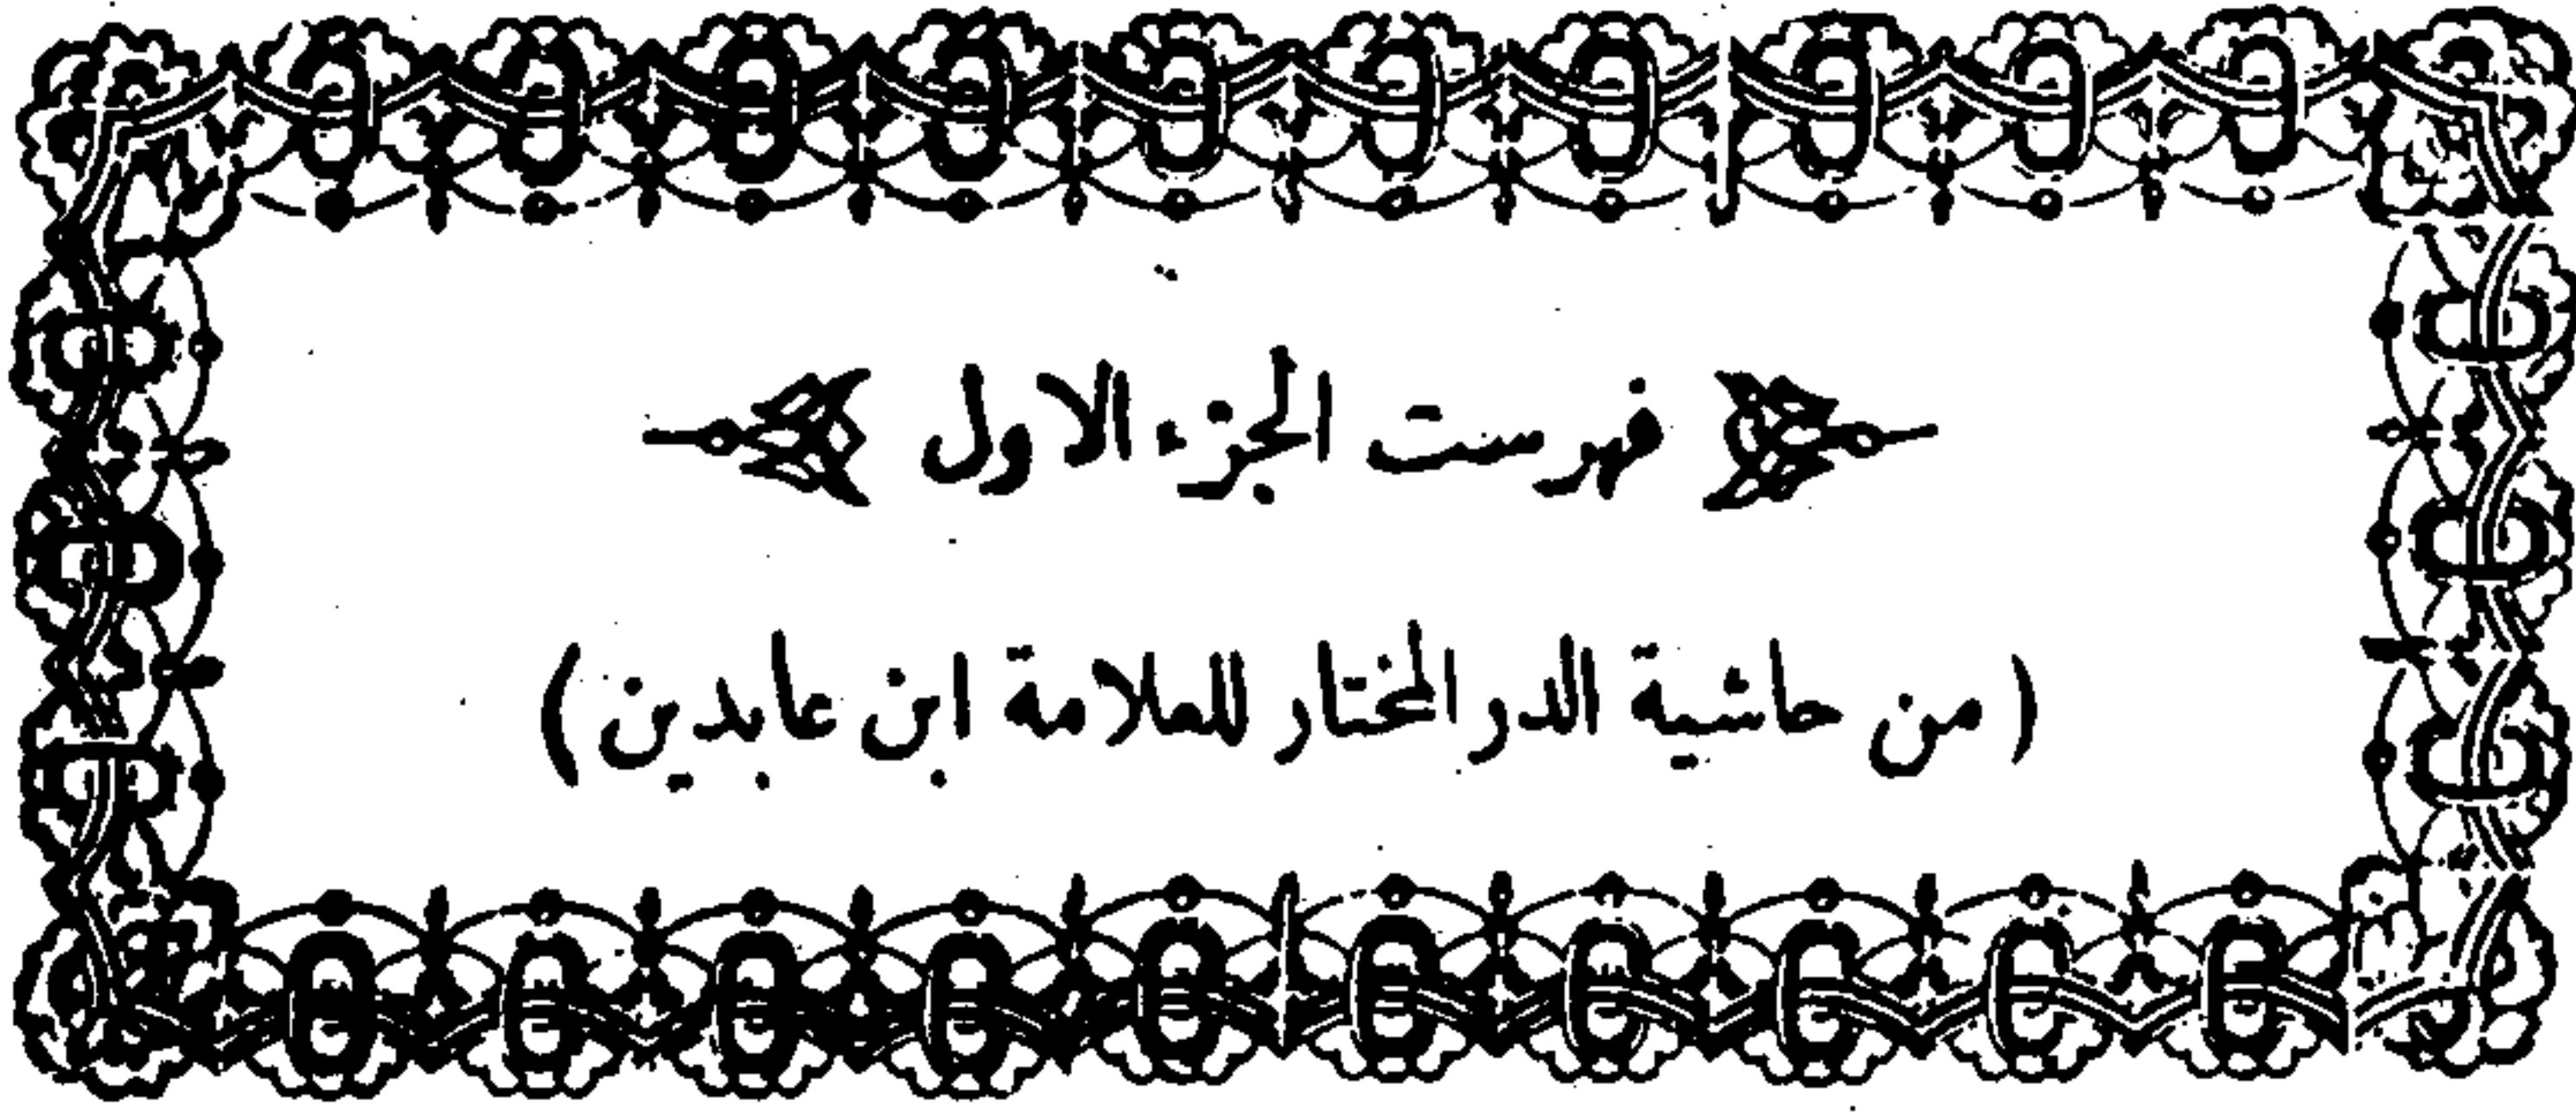 فهرست الجزء الاول
(من حاشية الدر المختار للعلامة ابن عابدين)